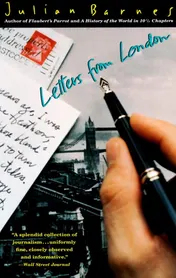 Julian Barnes
Author of Flaubert's Parrot and A History of the World in 10½ Chapters
Letters from London
"A splendid collection of
journalism...uniformly
fine, closely observed
and informative."
—Wall Street Journal